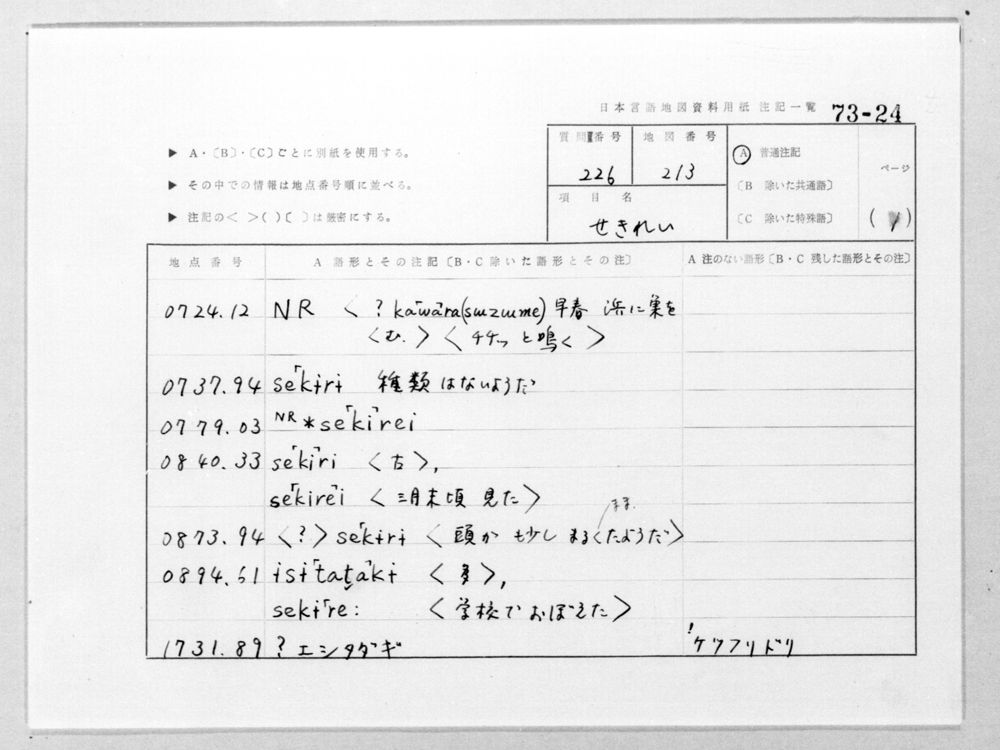 日本言語地図資料用紙 注記一覧 73-24
▶ A・〔B〕・〔C〕ごとに別紙を使用する。
▶ その中での情報は地点番号順に並べる。
▶ 注記の< >( )〔 〕は厳密にする。
質問番号 地図番号
226 213
項目名
せきれい
A 普通注記
〔B 除いた共通語〕
〔C 除いた特殊語〕
ページ
地点番号 A 語形とその注記〔B・C除いた語形とその注〕 A 注のない語形〔B・C 残した語形とその注〕
0724.12 NR <?ka「wa」ra(sɯzɯme) 早春 浜に巣を
<む.> <チチッと鳴く>
0737.94 se「kɨri 種類はないようだ
0779.03 NR *se「ki」rei
0840.33 se「kɨ」ri <古>,
se「kire」i <三月末頃 見た>
0873.94 <?> se「kɨri <頭が も少し まるくたようだ>
まま.
0894.61 isi「tata」ki < >,
seki「re: <学校でおぼえた>
1731.89 ?エシタダギ !ケツフリドリ